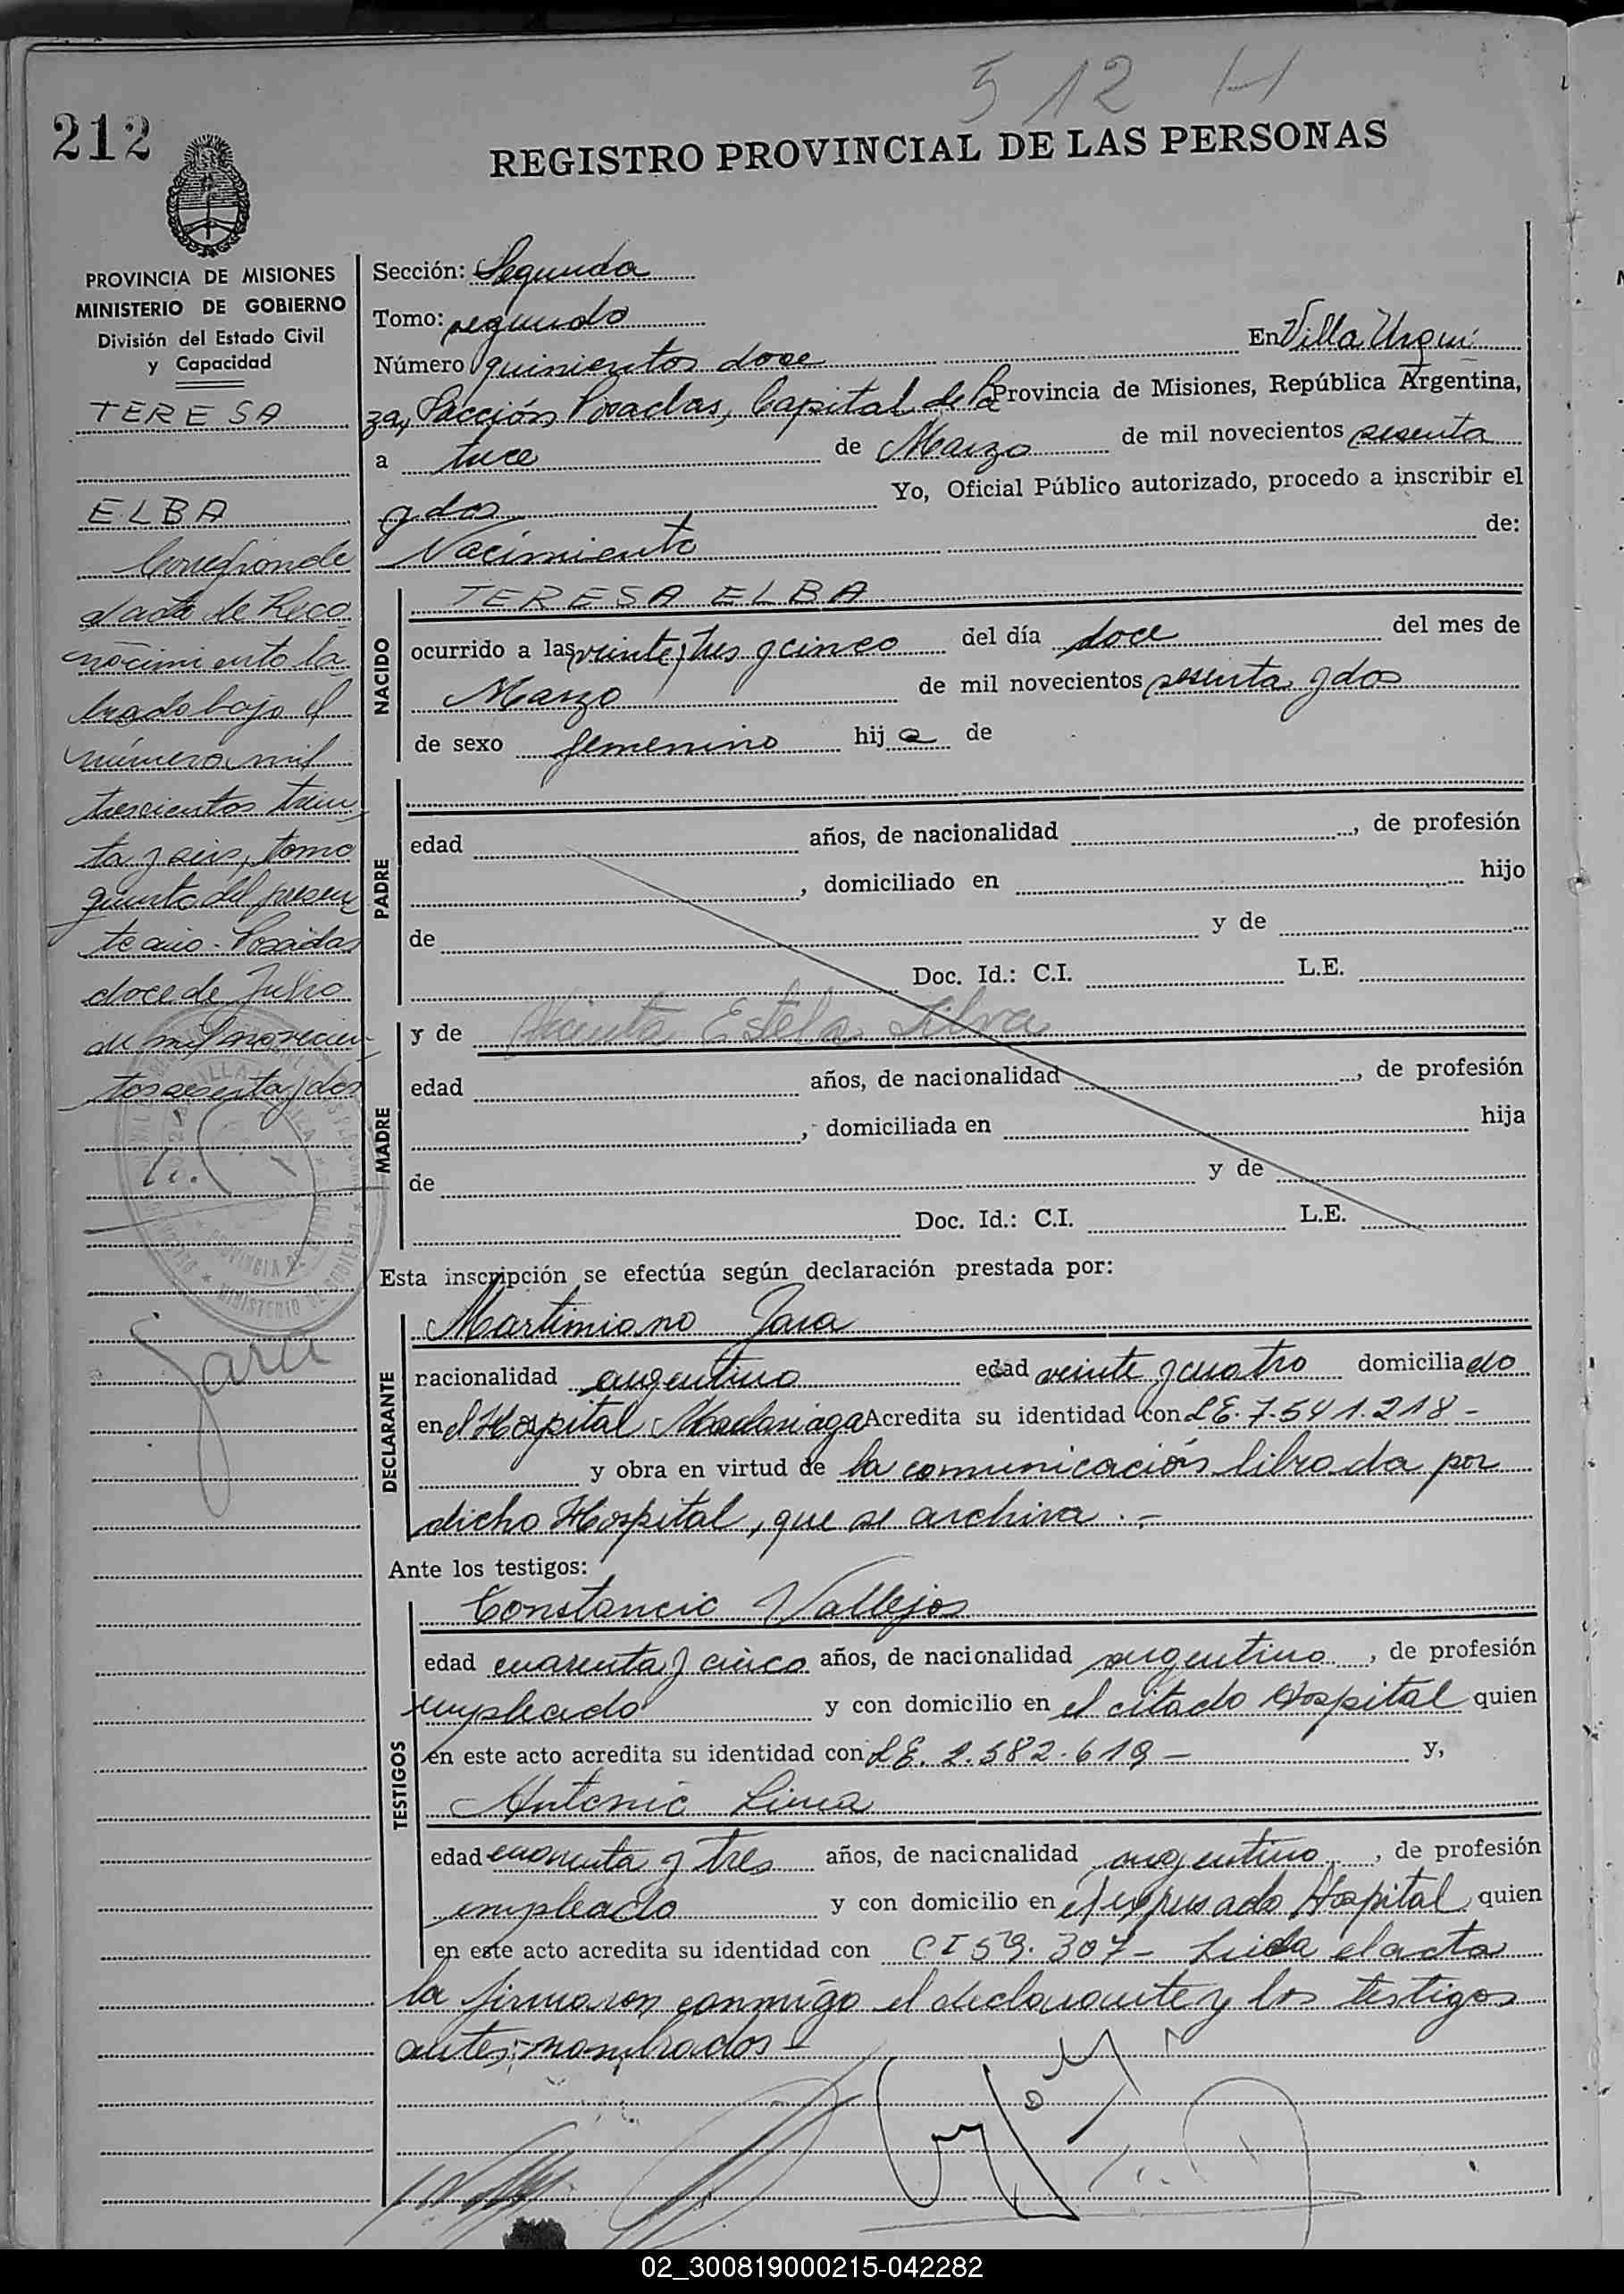 5 12 H
212
REGISTRO PROVINCIAL DE LAS PERSONAS
PROVINCIA DE MISIONES
MINISTERIO DE GOBIERNO
División del Estado Civil
y Capacidad
TERESA
ELBA
Corresponde
al acta de Reco
nocimiento la
brado bajo el
número mil
trescientos trein
ta y seis, tomo
quinto del presen
te año - Posadas
doce de Julio
de mil novecien
tos sesenta y dos
Jara
Sección: Segunda
Tomo: segundo
Número quinientos doce En Villa Urqui
za, Sección Posadas, Capital de la Provincia de Misiones, República Argentina,
a trece de Marzo de mil novecientos sesenta
y dos Yo, Oficial Público autorizado, procedo a inscribir el
Nacimiento de:
NACIDO
TERESA ELBA
ocurrido a las veinte y tres y cinco del día doce del mes de
Marzo de mil novecientos sesenta y dos
de sexo femenino hija de
PADRE
edad años, de nacionalidad , de profesión
, domiciliado en hijo
de y de
Doc. Id.: C.I. L.E.
MADRE
y de Estela Silva
edad años, de nacionalidad , de profesión
, domiciliada en hija
de y de
Doc. Id.: C.I. L.E.
Esta inscripción se efectúa según declaración prestada por:
DECLARANTE
Martimiano Jara
nacionalidad argentino edad veinte y cuatro domiciliado
en el Hospital Madariaga Acredita su identidad con L E. 7.541.218 -
y obra en virtud de la comunicación librada por
dicho Hospital, que se archiva . -
Ante los testigos:
TESTIGOS
Constancio Vallejos
edad cuarenta y cinco años, de nacionalidad argentino , de profesión
empleado y con domicilio en el citado Hospital quien
en este acto acredita su identidad con L E. 2.582.619 - y,
Antonio Lima
edad cuarenta y tres años, de nacionalidad argentino , de profesión
empleado y con domicilio en el expresado Hospital quien
en este acto acredita su identidad con C I 59.307 - Leida el acta
la firmaron conmigo el declarante y los testigos
antes nombrados -
02_300819000215-042282